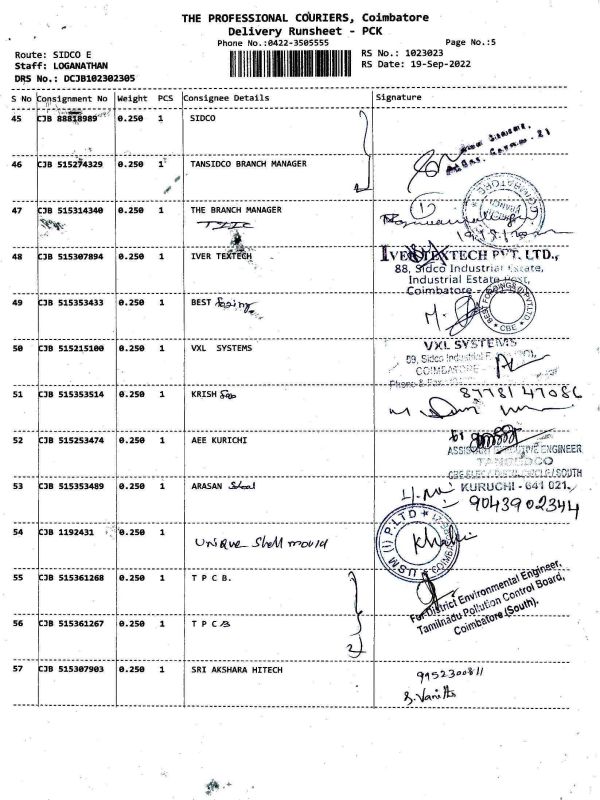 THE PROFESSIONAL COURIERS, Coimbatore
Delivery Runsheet - PCK
Phone No.:0422-3505555 Page No.:5
Route: SIDCO E RS No.: 1023023
Staff: LOGANATHAN RS Date: 19-Sep-2022
DRS No.: DCJB102302305
S No Consignment No Weight PCS Consignee Details Signature
45 CJB 88818989 0.250 1 SIDCO
46 CJB 515274329 0.250 1 TANSIDCO BRANCH MANAGER
2
47 CJB 515314340 0.250 1 THE BRANCH MANAGER
48 CJB 515307894 0.250 1 IVER TEXTECH IVER TEXTECH PVT. LTD.,
88, Sidco Industrial Estate,
Industrial Estate Post,
Coimbatore -
49 CJB 515353433 0.250 1 BEST
CBE
50 CJB 515215100 0.250 1 VXL SYSTEMS VXL SYSTEMS
COIMBATORE
51 CJB 515353514 0.250 1 KRISH 8778147086
52 CJB 515253474 0.250 1 AEE KURICHI
ASSISTANT EXECUTIVE ENGINEER
TANGEDCO
53 CJB 515353489 0.250 1 ARASAN Steel KURUCHI - 641 021.
9043902344
54 CJB 1192431 0.250 1 UNIQUE Shell mould
USM (I) P.LTD
55 CJB 515361268 0.250 1 T P C B.
For District Environmental Engineer,
Tamilnadu Pollution Control Board,
Coimbatore (South).
56 CJB 515361267 0.250 1 T P C B
2
57 CJB 515307903 0.250 1 SRI AKSHARA HITECH 9952300811
S. Vanitha